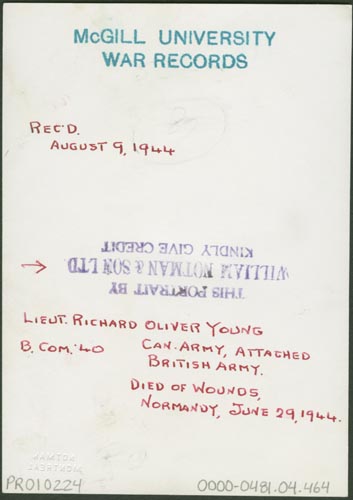 McGILL UNIVERSITY
WAR RECORDS
REC'D.
AUGUST 9, 1944
THIS PORTRAIT BY
WILLIAM NOTMAN & SON LTD.
KINDLY GIVE CREDIT
LIEUT. RICHARD OLIVER YOUNG
B. COM. '40 CAN. ARMY, ATTACHED
BRITISH ARMY.
DIED OF WOUNDS,
NORMANDY, JUNE 29, 1944.
NOTMAN
MONTREAL
PR010224 0000-0481.04.464